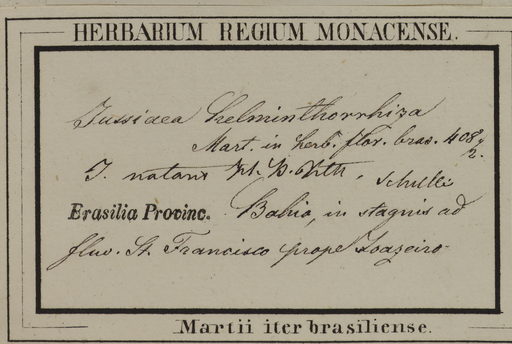 HERBARIUM REGIUM MONACENSE.
Jussiaea helminthorrhiza
Mart. in herb. flor. bras. 408
2.
J. natans
Brasilia Provinc. Bahia, in stagnis ad
fluv. St. Francisco prope Joazeiro
Martii iter brasiliense.